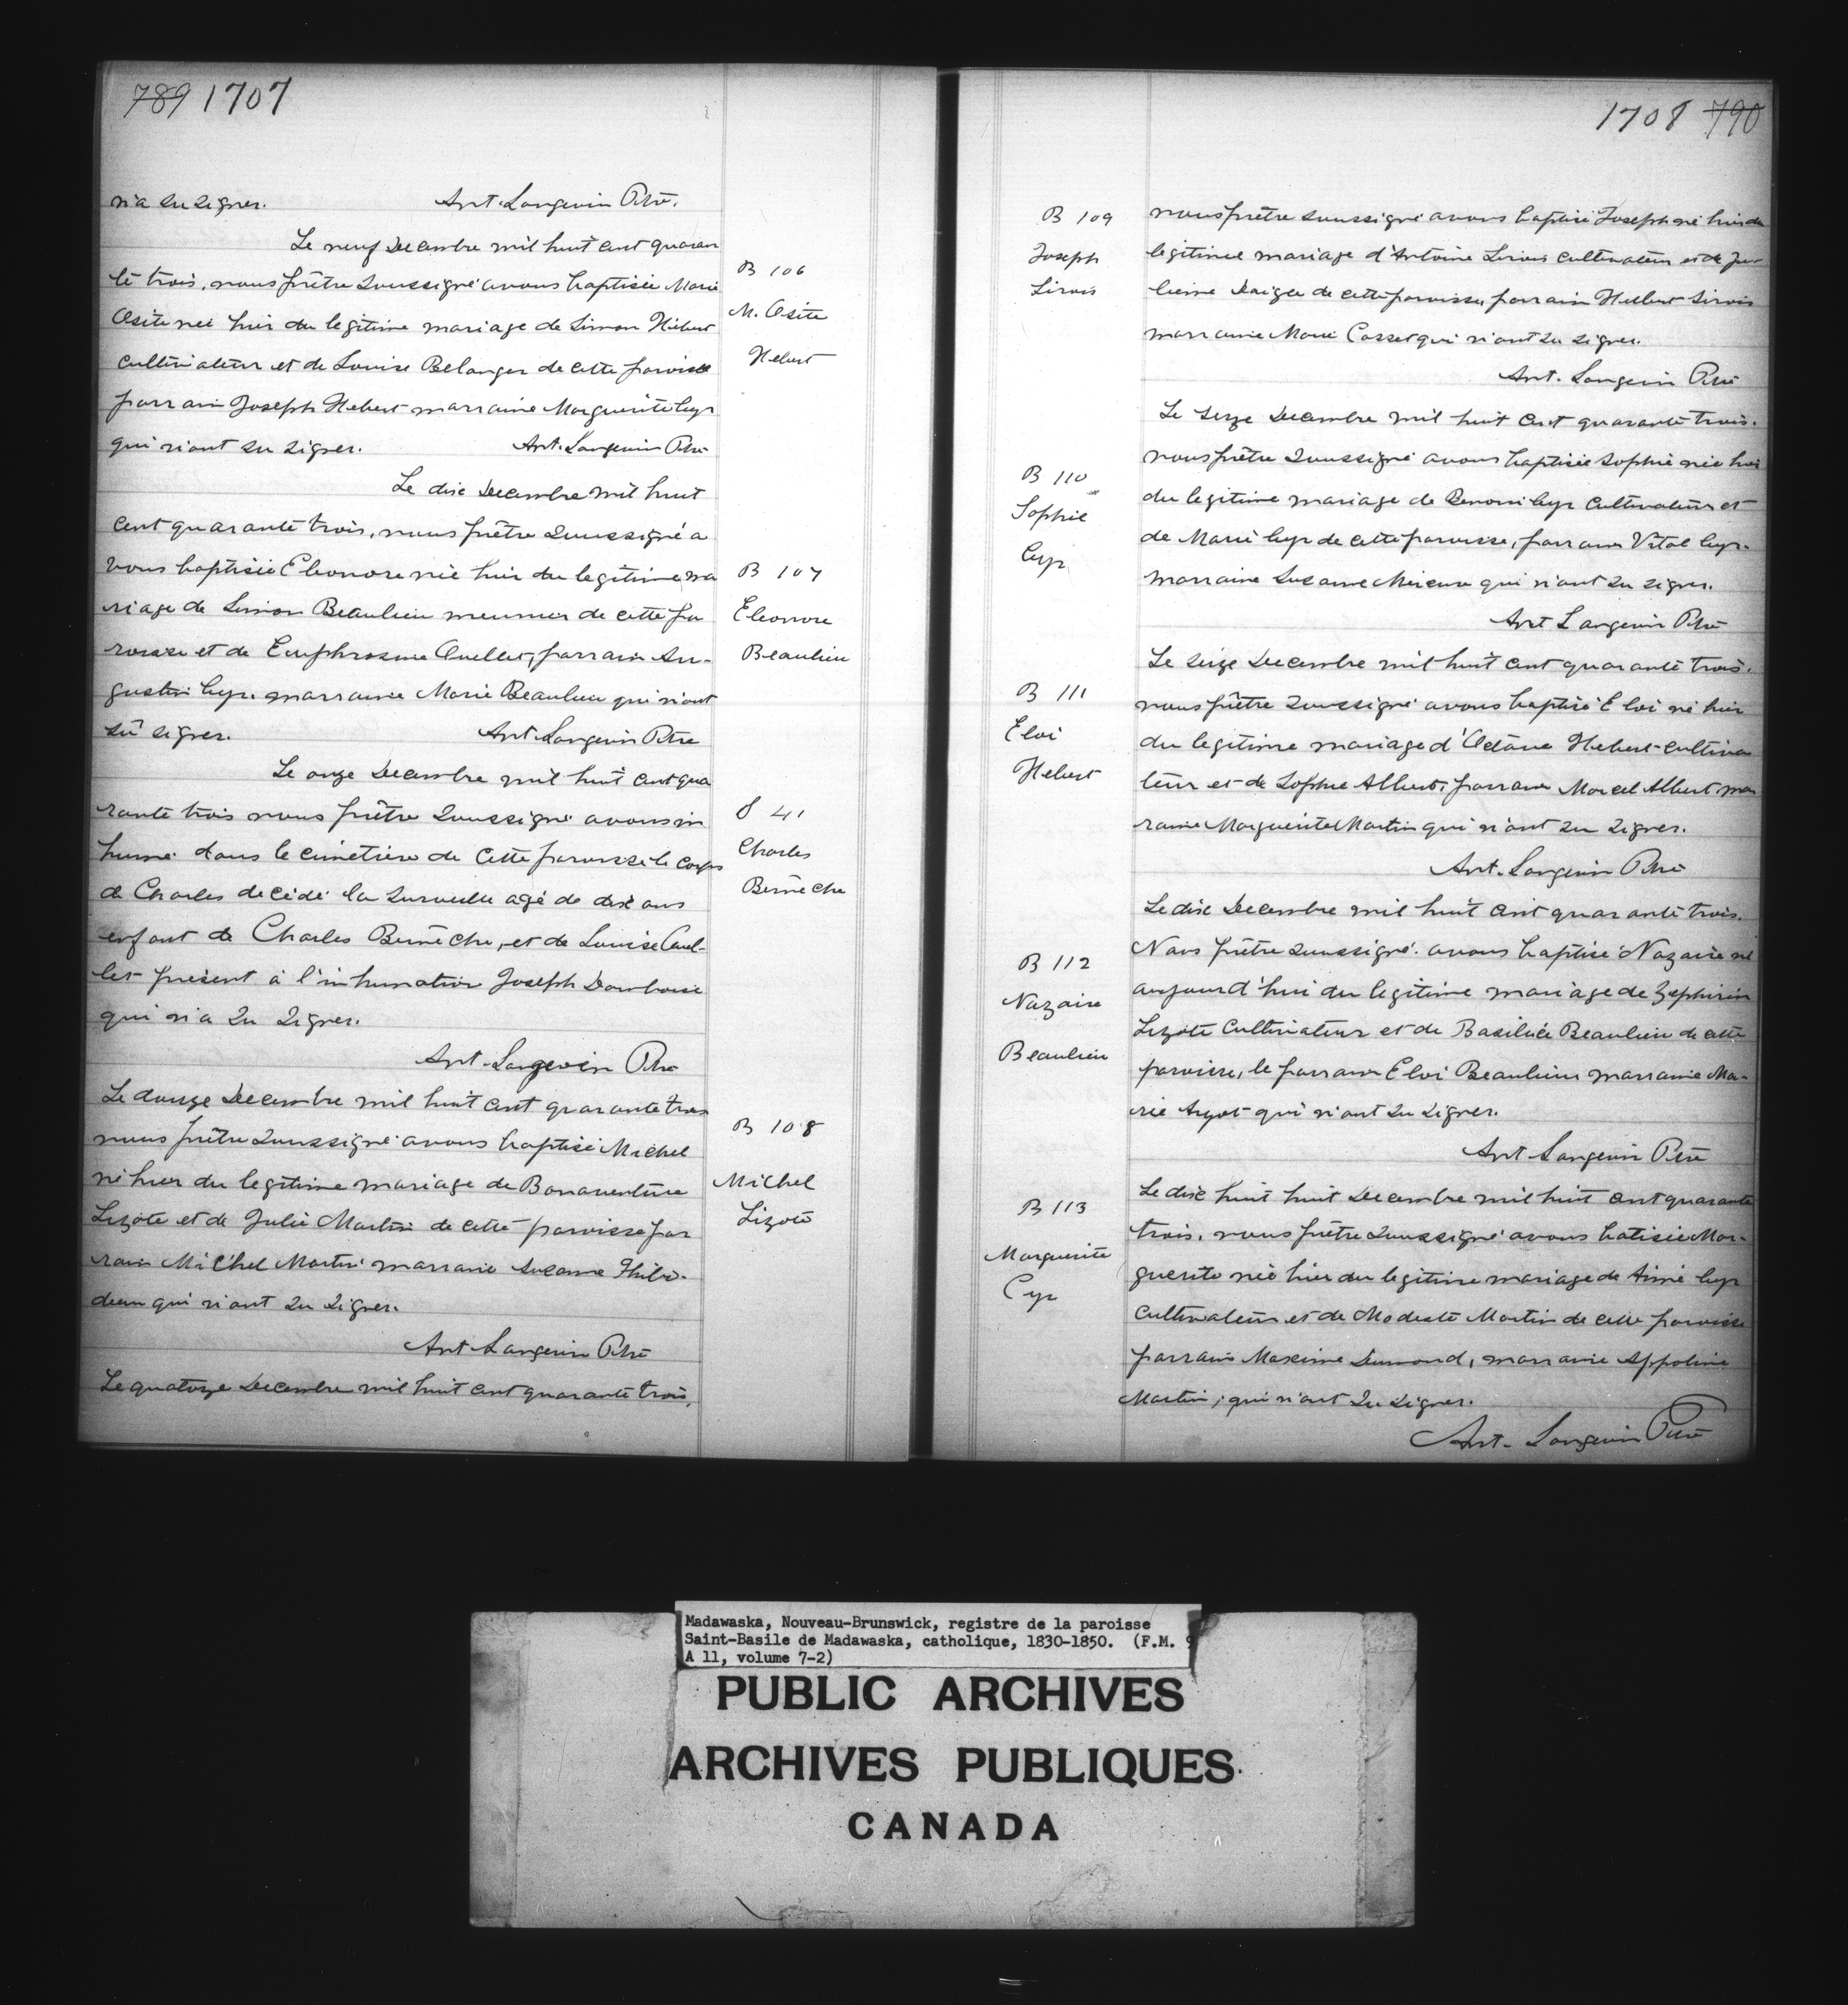 789 1707
n'a su signer. Ant. Langevin Ptre.
Le neuf Decembre mil huit cent quaran
te trois, nous prêtre soussigné avons baptisée Marie
Osite née hier du legitime mariage de Simon Hébert
cultivateur et de Louise Belanger de cette paroisse
parrain Joseph Hebert marraine Marguerite Cyr
qui n'ont su signer. Ant. Langevin Ptre
B 106
M. Osite
Hebert
Le dix Decembre mil huit
cent quarante trois, nous prêtre soussigné a
vons baptisée Eleonore née hier du legitime ma
riage de Simon Beaulieu meunier de cette pa
roisse et de Euphrosine Ouellet, parrain Au-
gustin Cyr. marraine Marie Beaulieu qui n'ont
sû signer. Ant. Langevin Ptre
B 107
Eleonore
Beaulieu
Le onze Decembre mil huit cent qua
rante trois nous prêtre soussigné avons in
humé dans le cimetière de cette paroisse le corps
de Charles decédé la surveille agé de dix ans
enfant de Charles Bernèche, et de Louise Ouel-
let présent à l'inhumation Joseph Damboise
qui n'a su signer.
Ant. Langevin Ptre
S 41
Charles
Bernèche
Le douze Decembre mil huit cent quarante trois
nous prêtre soussigné avons baptisé Michel
né hier du legitime mariage de Bonaventure
Lizote et de Julie Martin de cette paroisse par
rain Michel Martin marraine Susanne Thibo-
deau qui n'ont su signer.
Ant Langevin Ptre
B 108
Michel
Lizote
Le quatorze Decembre mil huit cent quarante trois,
1708 790
nous prêtre soussigné avons baptisé Joseph né hier du
legitime mariage d'Antoine Sirois cultivateur et de Ju-
lienne Daigle de cette paroisse, parrain Hubert Sirois
marraine Marie Casset qui n'ont su signer.
Ant. Langevin Ptre
B 109
Joseph
Sirois
Le seize Decembre mil huit cent quarante trois.
nous prêtre soussigné avons baptisée Sophie née hier
du legitime mariage de Benoni Cyr cultivateur et
de Marie Cyr de cette paroisse, parrain Vital Cyr.
marraine Susanne qui n'ont su signer.
Ant Langevin Ptre
B 110
Sophie
Cyr
Le seize Decembre mil huit cent quarante trois.
nous prêtre soussigné avons baptisé Eloi né hier
du legitime mariage d'Octave Hebert cultiva
teur et de Sophie Albert, parrain Marcel Albert mar
raine Marguerite Martin qui n'ont su signer.
Ant. Langevin Ptre
B 111
Eloi
Hebert
Le dix Decembre mil huit cent quarante trois.
Nous prêtre soussigné avons baptisé Nazaire né
aujourd'hui du legitime mariage de Zephirin
Lizote cultivateur et de Basilice Beaulieu de cette
paroisse, le parrain Eloi Beaulieu marraine Ma-
rie Ayot qui n'ont su signer.
Ant Langevin Ptre
B 112
Nazaire
Beaulieu
Le dix huit huit Decembre mil huit cent quarante
trois, nous prêtre soussigné avons batisée Mar-
guerite née hier du legitime mariage de Aimé Cyr
cultivateur et de Modeste Martin de cette paroisse
parrain Maxime Dumond, marraine Appoline
Martin, qui n'ont su signer.
Ant. Langevin Ptre
B 113
Marguerite
Cyr
Madawaska, Nouveau-Brunswick, registre de la paroisse
Saint-Basile de Madawaska, catholique, 1830-1850. (F.M. 9
A 11, volume 7-2)
PUBLIC ARCHIVES
ARCHIVES PUBLIQUES
CANADA